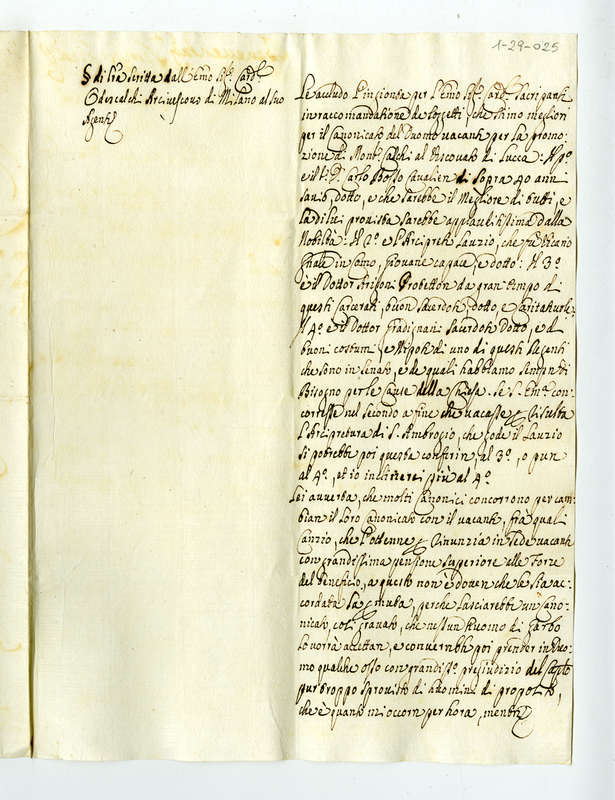 1-29-025
§ di lra scritta dall'Emo Sig.r Card.l
Odescalchi Arcivescovo di Milano al suo
Agente
Le accludo l'ingionta per l'Emo Sig.r Card.l Sacripante
in raccomandatione de soggetti che stimo megliori
per il Canonicato del Duomo vacante per la promo:
zione di Mons.r Calchi al Vescovato di Lucca: Il p.o
è il Carlo Bosso Cavaliere di sopra 40 anni
savio, dotto, e che sarebbe il megliore di tutti, e
la di lui provista sarebbe applauditissima dalla
Nobiltà: Il 2.o è l'Arciprete Lauzio, che fù Vicario
in giovane capace, e dotto: Il 3.o
è il Dottor Protettore da gran tempo di
questi Carcerati, buon sacerdote, dotto, e caritatevole:
Il 4.o è il Dottor Gradignani sacerdote dotto, e di
buoni costumi, e Nipote di uno di questi Regenti
che sono in senato, e de quali habbiamo sempre
bisogno per le cause della Chiesa. Se S. Em.za con-
corresse nel secondo a fine che vacasse
l'Arcipretura di S. Ambrogio, che gode il Lauzio
si potrebbe poi questa conferire al 3.o, o pure
al 4.o, et io inclinerei più al 4.o
Lei avverta, che molti Canonici concorrono per cam-
biare il loro Canonicato con il vacante, frà quali
che l'ottenne renuntia in sede vacante
con grandissima pensione superiore alle forze
del beneficio, a questo non è dovere che le sia ac-
cordata la muta, perche lasciarebbe un Cano-
nicato così gravato, che nessun huomo di garbo
lo vorrà accettare, e converrebbe poi prender in Duo-
mo qualche con grandiss.o pregiudizio del Capitolo
pur troppo sprovisto di huomini di proposito,
che è quanto mi occorre per hora, mentre